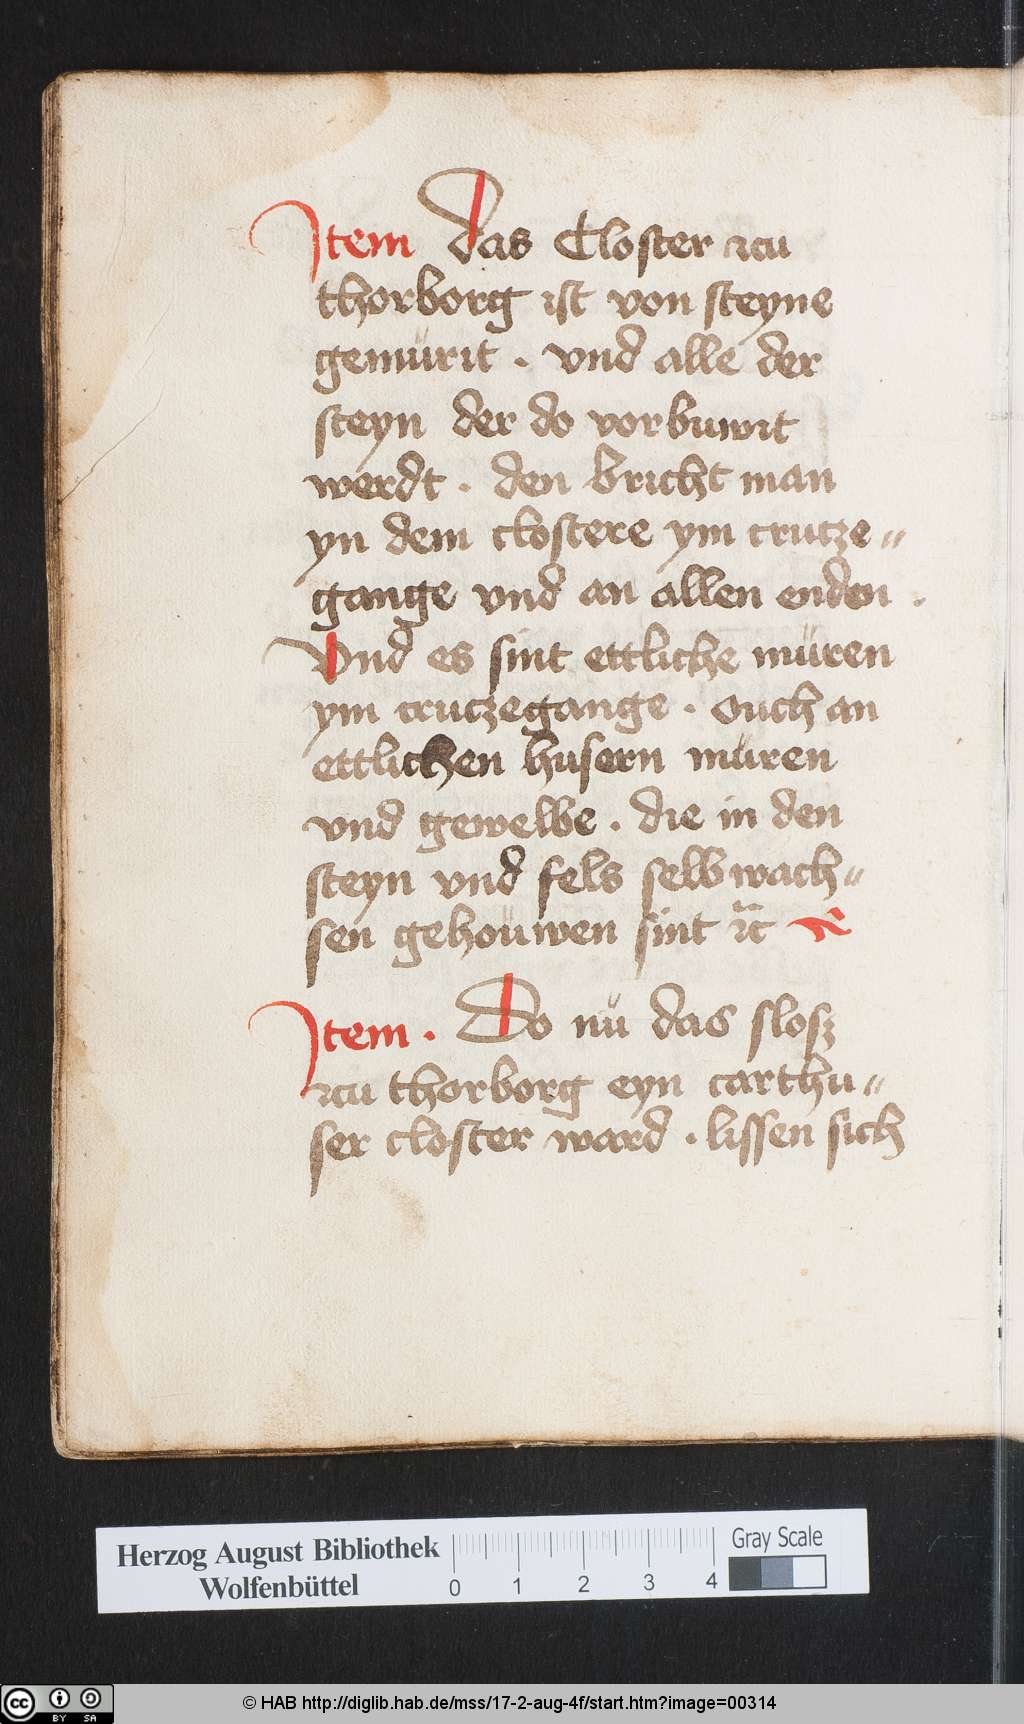 Item das Closter zcu
thorborg ist von steyne
gemürit . vnd alle der
steyn der do vorbuwit
werdt . den bricht man
yn dem clostere ym crutze〃
gange vnd an allen enden .
Vnd es sint ettliche müren
ym crutzegange . Ouch an
ettlichen husern müren
vnd gewelbe . die in den
steyn vnd fels selbwach〃
sen gehouwen sint ꝛc̃
Item . Do nü das slosz
zcu thorborg eyn carthu〃
ser closter ward . lissen sich
Herzog August Bibliothek
Wolfenbüttel
0 1 2 3 4
Gray Scale
cc BY SA
© HAB http://diglib.hab.de/mss/17-2-aug-4f/start.htm?image=00314